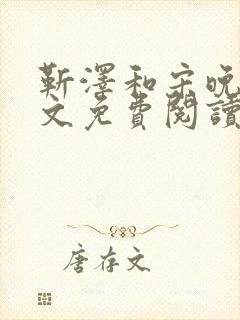 靳澤和宋晚
文免費閱讀
唐存文